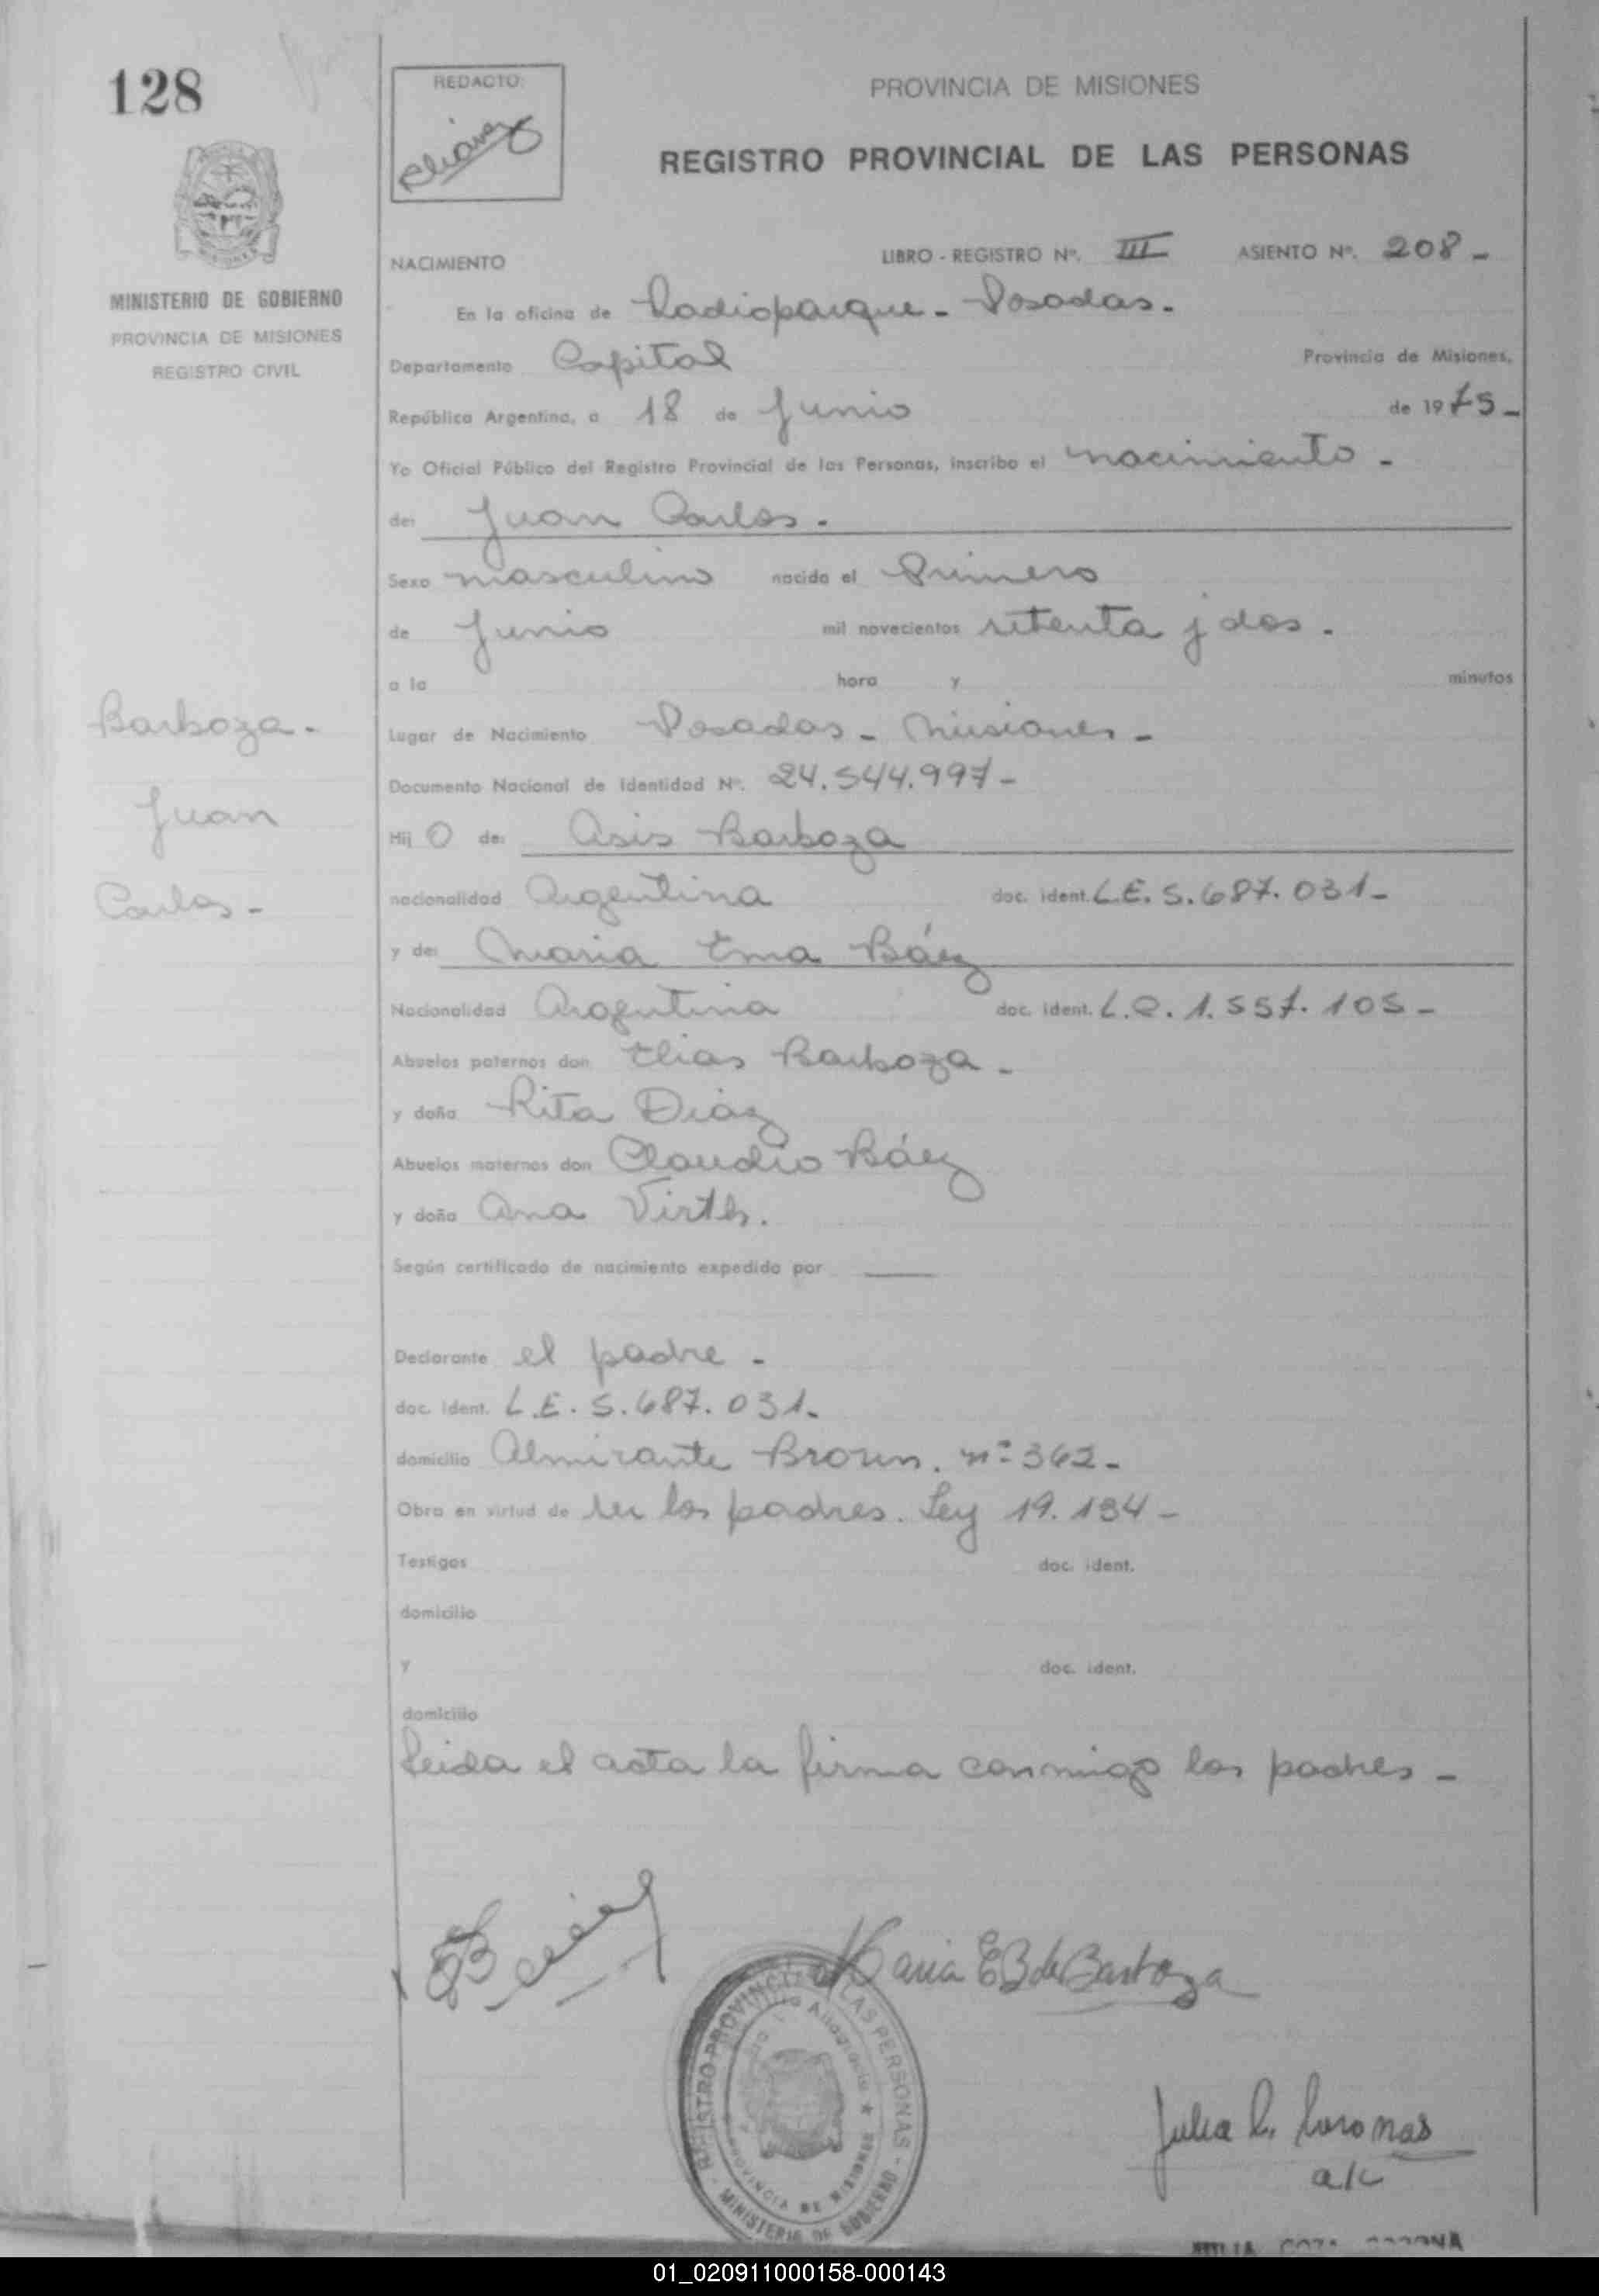 128
REDACTO:
PROVINCIA DE MISIONES
REGISTRO PROVINCIAL DE LAS PERSONAS
MINISTERIO DE GOBIERNO
PROVINCIA DE MISIONES
REGISTRO CIVIL
NACIMIENTO LIBRO - REGISTRO Nº. III ASIENTO Nº. 208 -
En la oficina de Radioparque - Posadas.
Departamento Capital Provincia de Misiones,
República Argentina, a 18 de Junio de 1975 -
Yo Oficial Público del Registro Provincial de las Personas, inscribo el nacimiento -
de: Juan Carlos.
Sexo masculino nacido el Primero
de Junio mil novecientos setenta y dos.
a la hora y minutos
Barboza -
Juan
Carlos -
Lugar de Nacimiento Posadas - Misiones -
Documento Nacional de Identidad Nº. 24.544.997 -
Hij O de: Asis Barboza
nacionalidad Argentina doc. ident. L.E. 5.687.031 -
y de: Maria Ema Báez
Nacionalidad Argentina doc. ident. L.C. 1.557.105 -
Abuelos paternos don Elias Barboza -
y doña Rita Diaz
Abuelos maternos don Claudio Báez
y doña Ana
Según certificado de nacimiento expedido por
Declarante el padre -
doc. ident. L.E. 5.687.031 -
domicilio Almirante Brown. nº 362 -
Obra en virtud de ser los padres. Ley 19.134 -
Testigos doc. ident.
domicilio
y doc. ident.
domicilio
Leida el acta la firma conmigo los padres -
Maria E B de Barboza
REGISTRO PROVINCIAL DE LAS PERSONAS - MINISTERIO DE GOBIERNO
PROVINCIA DE MISIONES
Julia C. Coronas
a/c
01_020911000158-000143